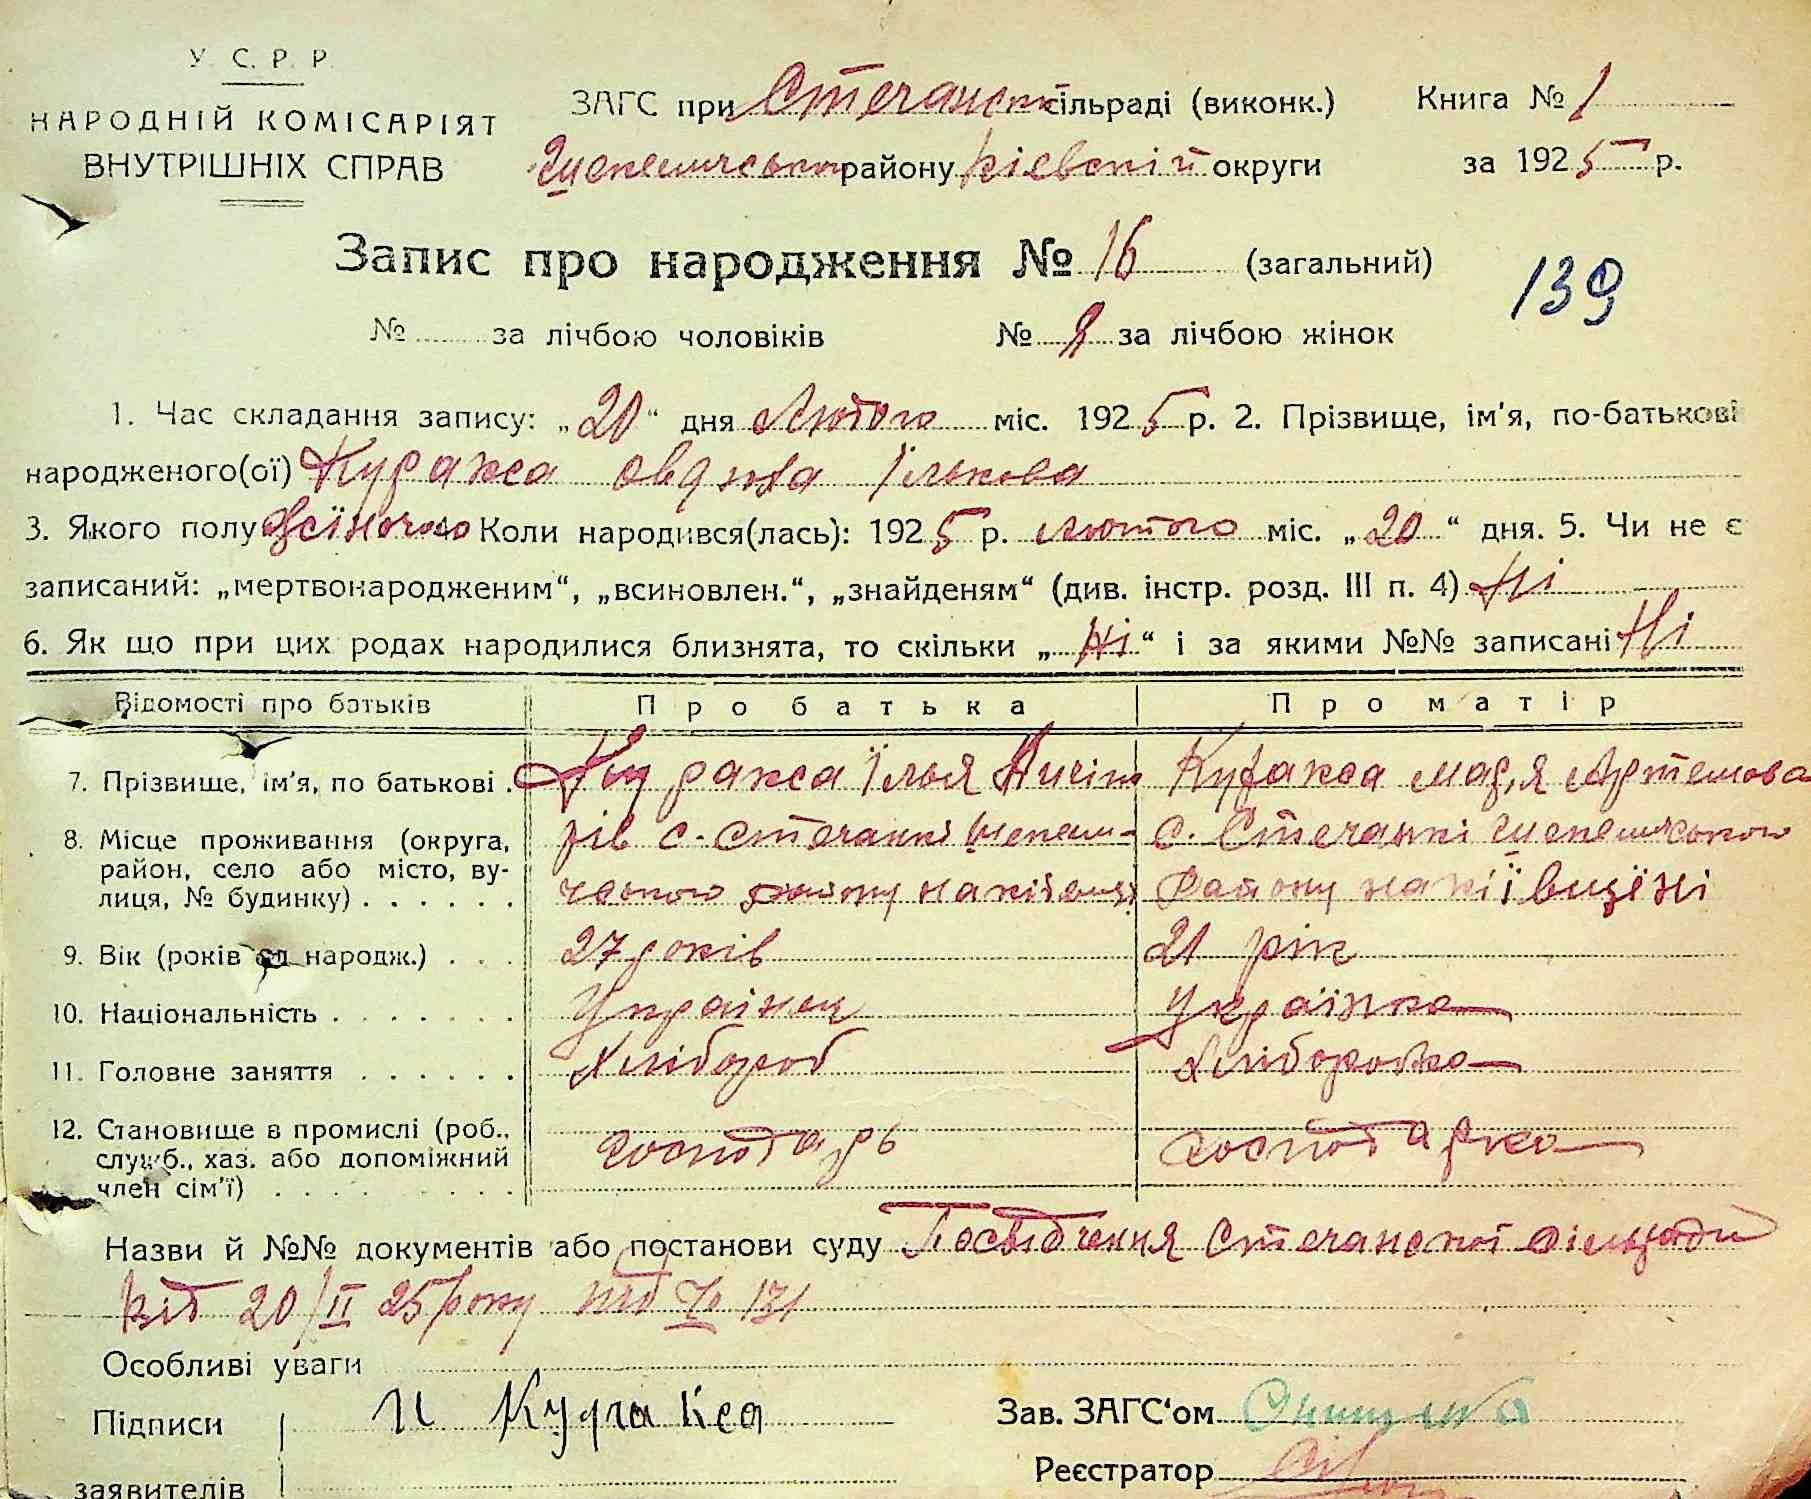 У. С. Р. Р.
НАРОДНІЙ КОМІСАРІЯТ
ВНУТРІШНІХ СПРАВ
ЗАГС при Стечанскі сільраді (виконк.) Книга № 1
району Кіевскій округи за 1925 р.
Запис про народження № 16 (загальний)
139
№ за лічбою чоловіків № за лічбою жінок
1. Час складання запису: „20“ дня Лютого міс. 1925 р. 2. Прізвище, ім'я, по-батькові
народженого(ої) Куракса Ількова
3. Якого полу жіночого 4. Коли народився(лась): 1925 р. лютого міс. „20“ дня. 5. Чи не є
записаний: „мертвонародженим“, „всиновлен.“, „знайденям“ (див. інстр. розд. III п. 4) Ні
6. Як що при цих родах народилися близнята, то скільки „Ні“ і за якими №№ записані Ні
Відомості про батьків Про батька Про матір
7. Прізвище, ім'я, по батькові . Куракса Ілья Куракса Марія Артемова
8. Місце проживання (округа, с. Стечанкі с. Стечанкі
район, село або місто, ву-
лиця, № будинку) . . . . . . району на району на Київщіні
9. Вік (років од народж.) . . . 27 років 21 рік
10. Національність . . . . . . . Українец Українка
11. Головне заняття . . . . . . Хлібороб Хліборобка
12. Становище в промислі (роб., господарь господарка
служб., хаз. або допоміжний
член сім'ї) . . . . . . . . .
Назви й №№ документів або постанови суду Посвідчення Стечанскої сільради
від 20/II 25 року під № 131
Особливі уваги
Підписи И Куракса Зав. ЗАГС‘ом
заявителів Реєстратор